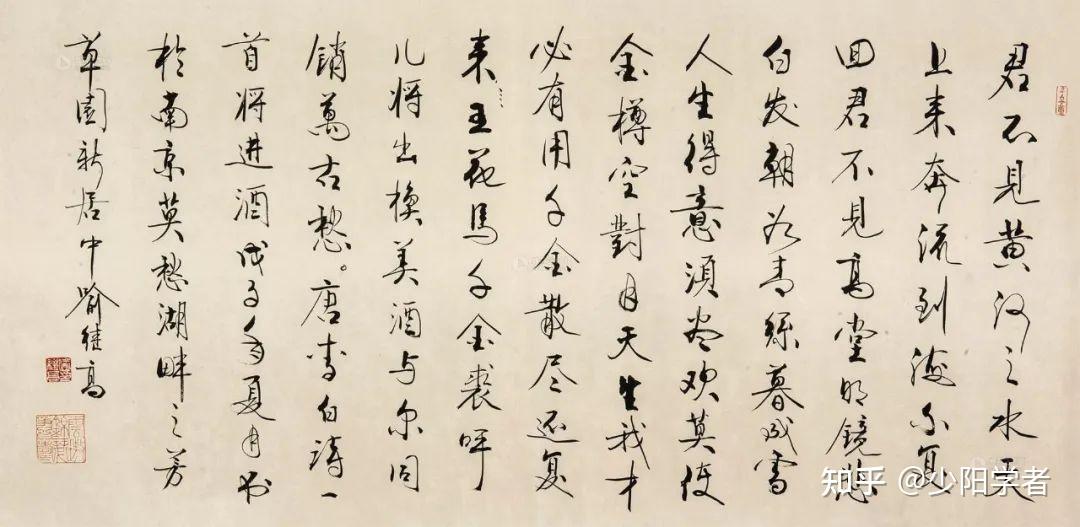 君不見黄河之水天
上来奔流到海不复
回君不見高堂明鏡悲
白发朝如青絲暮成雪
人生得意須尽欢莫使
金樽空對月天生我才
必有用千金散尽还复
来五花馬千金裘呼
儿将出换美酒与尔同
銷萬古愁。唐李白詩一
首将进酒戊子年夏月书
於南京莫愁湖畔之芳
草園新居中喻继高
知乎 @少阳学者